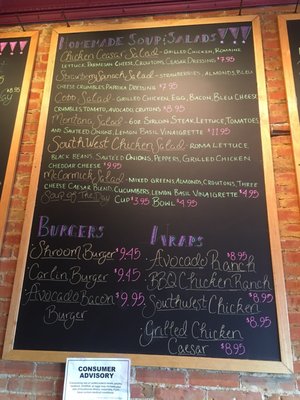 Homemade Soup & Salads
Chicken Ceasar Salad - Grilled Chicken, Romaine
Lettuce, Parmesan Cheese, Croutons, Ceasar Dressing $7.95
Strawberry Spinach Salad - Strawberries, Almonds, Bleu
Cheese Crumbles, Paprika Dressing $7.95
Cobb Salad - Grilled Chicken, Egg, Bacon, Bleu Cheese
Crumbles, Tomato, Avocado, Croutons $8.95
Montana Salad - 6oz Sirloin Steak, Lettuce, Tomatoes,
and Sauteed Onions, Lemon Basil Vinaigrette $11.95
Southwest Chicken Salad - Roma Lettuce,
Black Beans, Sauteed Onions, Peppers, Grilled Chicken
Cheddar Cheese $9.95
McCormick Salad - Mixed Greens, Almonds, Croutons, Three
Cheese Caesar Blend, Cucumbers, Lemon Basil Vinaigrette $4.95
Soup of The Day Cup $3.95 Bowl $4.95
Burgers
Shroom Burger $9.45
Carlin Burger $9.45
Avocado Bacon $9.95
Burger
Wraps
Avocado Ranch $8.95
BBQ Chicken Ranch $8.95
Southwest Chicken $8.95
Grilled Chicken
Caesar $8.95
CONSUMER
ADVISORY